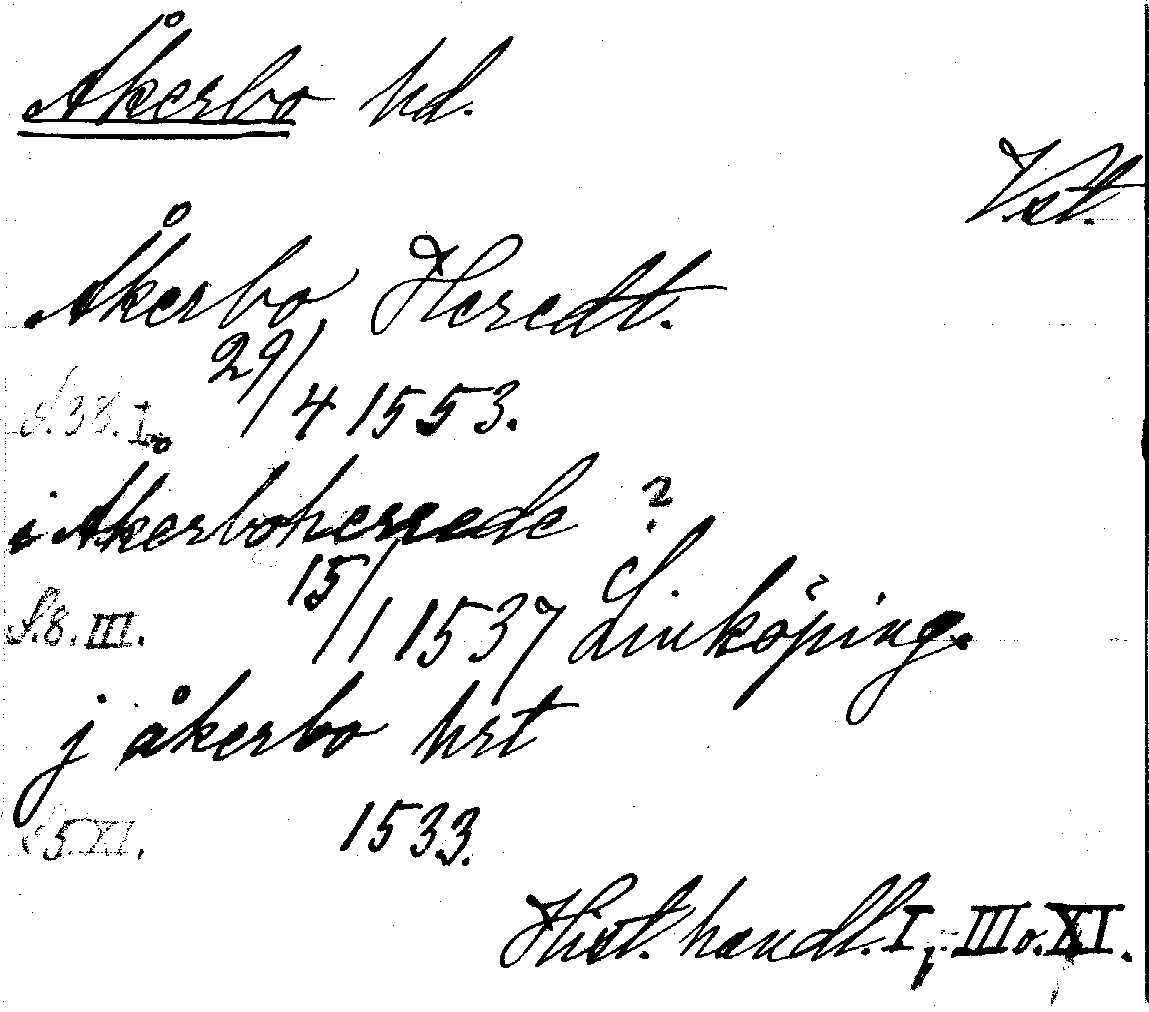 Åkerbo hd.
Vst.
Åkerbo Heredt.
29/4 1553.
S.38.I.
i Åkerboherede ?
15/1 1537 Linköping.
S.8.III.
j åkerbo hrt
1533.
S.5.XI.
Hist. handl. I, III o. XI.